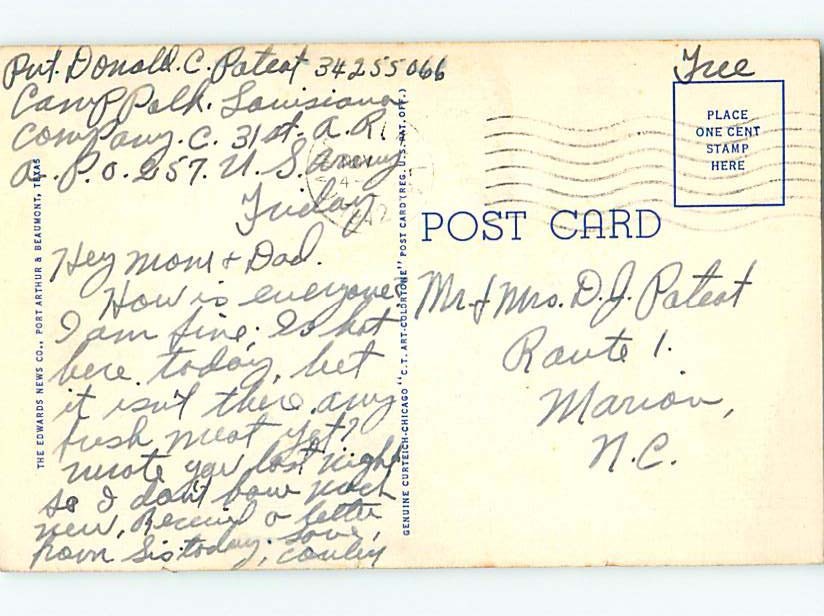 Pvt. Donald. C. Poteat 34255066
Camp Polk. Louisiana
Company. C. 31st. A. R.
A. P. O. 257. U. S. Army
Friday
Hey Mom & Dad.
How is everyone
I am fine. Is hot
here today, bet
it isn't there. any
fresh meat yet?
wrote you last night
so I don't have much
new. Received a letter
from Sis. today. Love,
Conley
Free
PLACE
ONE CENT
STAMP
HERE
POST CARD
Mr. & Mrs. D. J. Poteat
Route 1.
Marion,
N.C.
THE EDWARDS NEWS CO., PORT ARTHUR & BEAUMONT, TEXAS
GENUINE CURTEICH-CHICAGO "C.T. ART-COLORTONE" POST CARD (REG. U.S. PAT. OFF.)